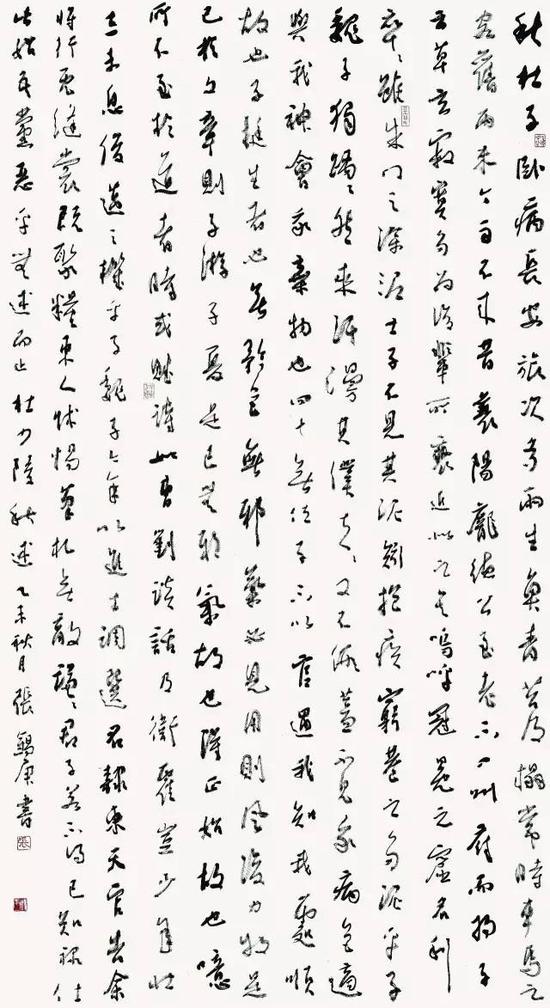 秋杜子臥病長安旅次多雨生魚青苔及榻常時車馬之
客舊雨來今雨不來昔襄陽龐德公至老不入州府而揚子
雲草玄寂寞多為後輩所褻近似之矣嗚呼冠冕之窟名利
卒卒雖朱門之深泥士子不見其泥矧抱疾窮巷之多泥乎子
魏子獨踽踽然來汗漫其僕夫夫又不假蓋不見我病色適
與我神會我棄物也四十無位子不以官遇我知我處順
故也子挺生者也無矜色無邪氣必見用則風后力牧是
已於文章則子游子夏是已無邪氣故也得正始故也噫
所不至於道者時或賦詩如曹劉談話及衛霍豈少年壯
志未息俊邁之機乎子魏子今年以進士調選名隸東天官告余
將行既縫裳既聚糧東人怵惕筆札無敵謙謙君子若不得已知祿仕
此始吾黨惡乎無述而止 杜少陵秋述 乙未秋月張錫庚書